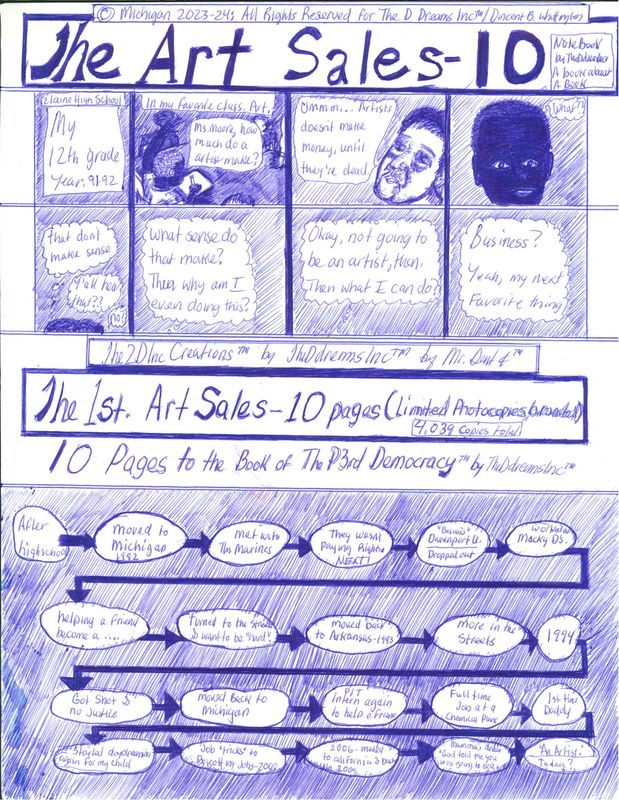 © Michigan 2023-24: All Rights Reserved for The D Dreams Inc™/ Dincent B. Whittington
The Art Sales-10
NoteBook
by TheDdreams
A book about
A Book
Elaine High School
My
12th grade
Year: 91-92
In my favorite class, Art.
Ms. Moore, how
much do a
artist make?
Ummm... Artists
doesn't make
money, until
they're dead.
What?!
that don't
make sense
Y'all hear
that??
no?
What sense do
that make?
Then why am I
even doing this?
Okay, not going to
be an artist, then.
Then what I can do?
Business?
Yeah, my next
Favorite thing
The2DInc Creations™ by TheDdreamsInc™ by Mr. Dav
The 1st. Art Sales-10 pages (Limited Photocopies,
4,039 Copies total
10 Pages to the Book of The P3rd Democracy™ by TheDdreamsInc™
After
highschool
moved to
Michigan
1992
met with
The Marines
They wasn't
Paying Right
NEXT!
"Business"
Davenport U.
Dropped out
worked at
Macky Ds.
helping a friend
become a ....
Turned to the streets
& want to be "hard".
moved "back"
to Arkansas-1993
more in the
Streets
1994
Got Shot &
no Justice
moved Back to
Michigan
PIT
Intern again
to help a friend
Full time
Job at a
Chemical Plant
1st time
Daddy
Started daydreaming
again for my child
Job "tricks" to
Jobs-2000
2006- moved
to california & back
in 2009
told me you
was going to be
"An Artist"
Today?